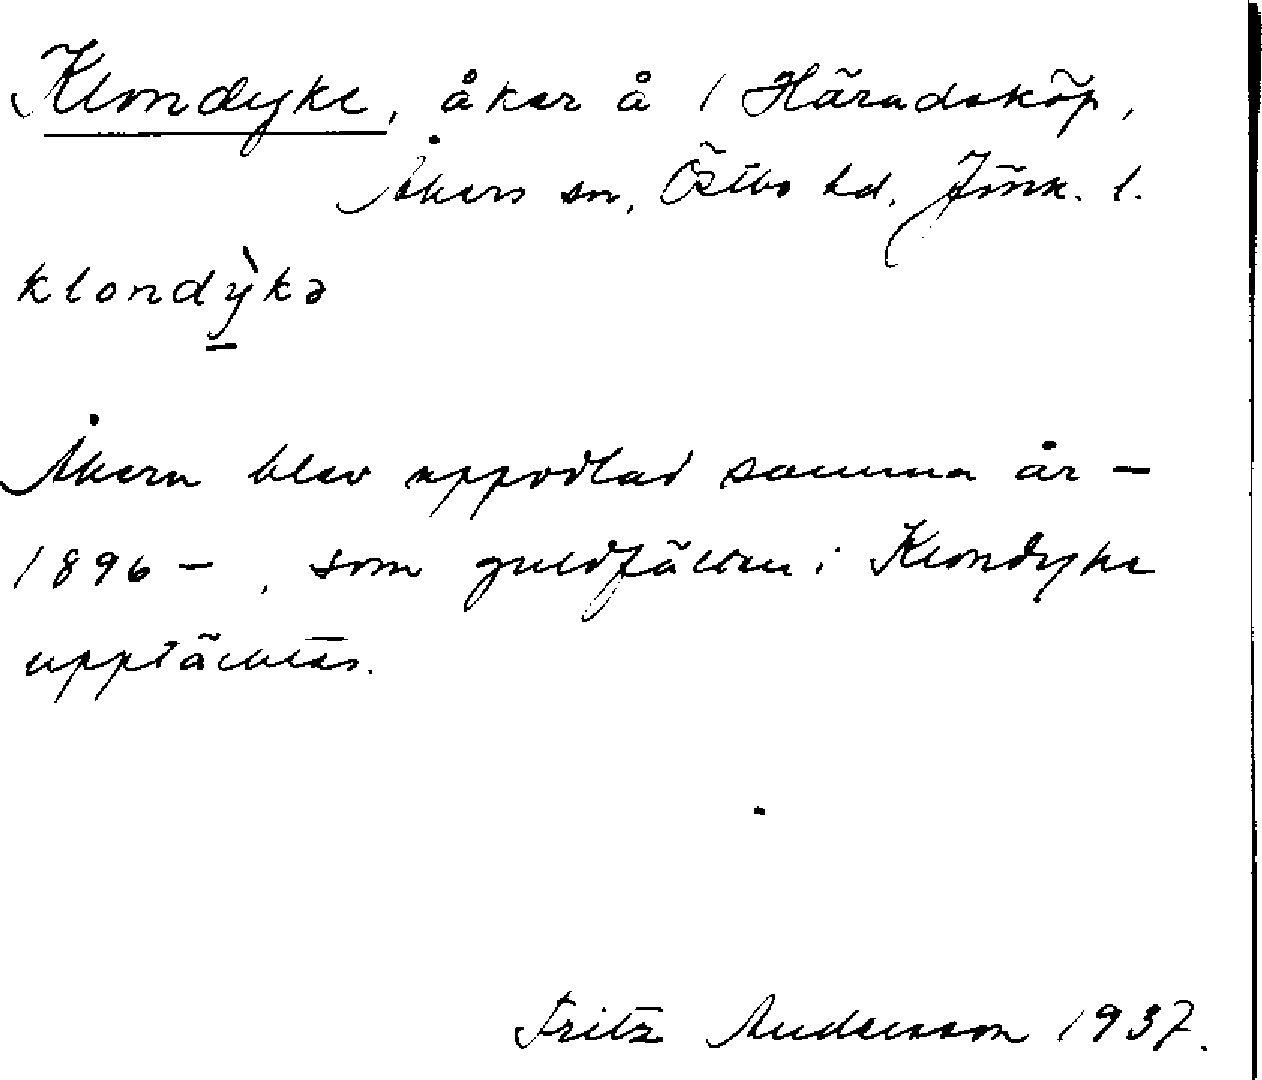 Klondyke, åker å 1 Häradsköp,
Åkers sn, Östbo hd. Jönk. l.
klondỳkə
Åkern blev uppodlad samma år –
1896 – , som guldfälten i Klondyke
upptäcktes.
Fritz Andersson 1937.